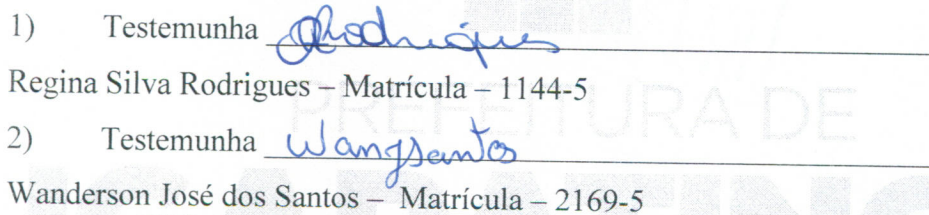 1) Testemunha Rodrigues
Regina Silva Rodrigues – Matrícula – 1144-5
PREFEITURA DE
2) Testemunha Wanjsantos
Wanderson José dos Santos – Matrícula – 2169-5